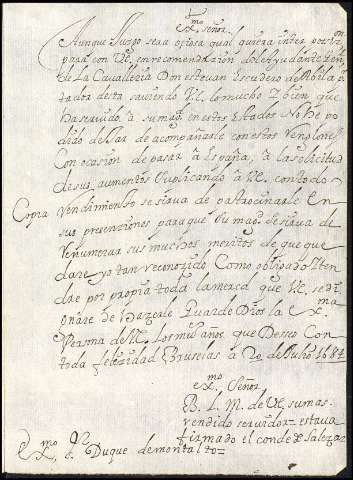 Ex.mo señor
Aunque Juzgo sera ociosa qualquiera inter posi.on
para con V.E. en recomendacion del Ayudante
de la Cavalleria Don estevan Escudero de Avila
tador desta saviendo V.E. lo mucho y bien que
ha servido a su mag. en estos Estados No he po
dido dejar de acompañarle con estos Renglones
Con ocasion de pasar a España, a la solicitud
de sus aumentos Suplicando a V.E. con todo
Rendimiento se sirva de patrocinarle En
sus pretenziones para que Su mag. se sirva de
Remunerar sus muchos meritos de que que
dare yo tan reconozido Como obligado y ten
dre por propia toda la merced que V.E. se di
gnare de hazerle Guarde Dios la Ex.ma
Persona de V.E. los mill años que Deseo Con
toda felizidad Bruselas a 20 de Julio 1684
Copia
Ex.mo Señor
B. L. M. de V.E. su mas
rendido servidor estava
firmado el conde de salazar
Ex.mo S.or Duque de montalto